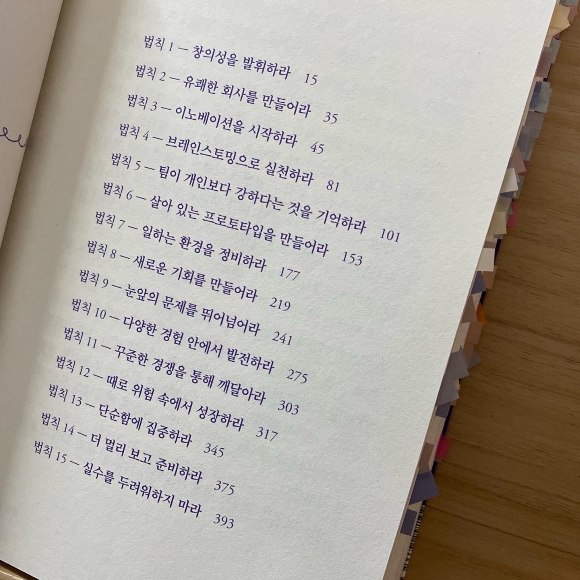 법칙 1 — 창의성을 발휘하라 15
법칙 2 — 유쾌한 회사를 만들어라 35
법칙 3 — 이노베이션을 시작하라 45
법칙 4 — 브레인스토밍으로 실천하라 81
법칙 5 — 팀이 개인보다 강하다는 것을 기억하라 101
법칙 6 — 살아 있는 프로토타입을 만들어라 153
법칙 7 — 일하는 환경을 정비하라 177
법칙 8 — 새로운 기회를 만들어라 219
법칙 9 — 눈앞의 문제를 뛰어넘어라 241
법칙 10 — 다양한 경험 안에서 발전하라 275
법칙 11 — 꾸준한 경쟁을 통해 깨달아라 303
법칙 12 — 때로 위험 속에서 성장하라 317
법칙 13 — 단순함에 집중하라 345
법칙 14 — 더 멀리 보고 준비하라 375
법칙 15 — 실수를 두려워하지 마라 393